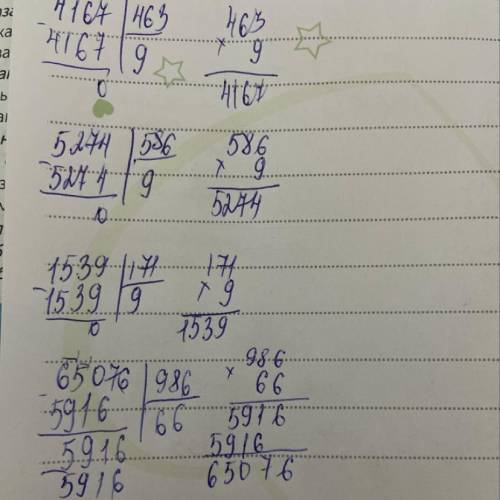 4167 | 463   463
- 4167 | 9   × 9
0   4167
5274 | 586   586
- 5274 | 9   × 9
0   5274
1539 | 171   171
- 1539 | 9   × 9
0   1539
- 65076 | 986   × 986
5916 | 66   66
- 5916   5916
5916   5916
65076